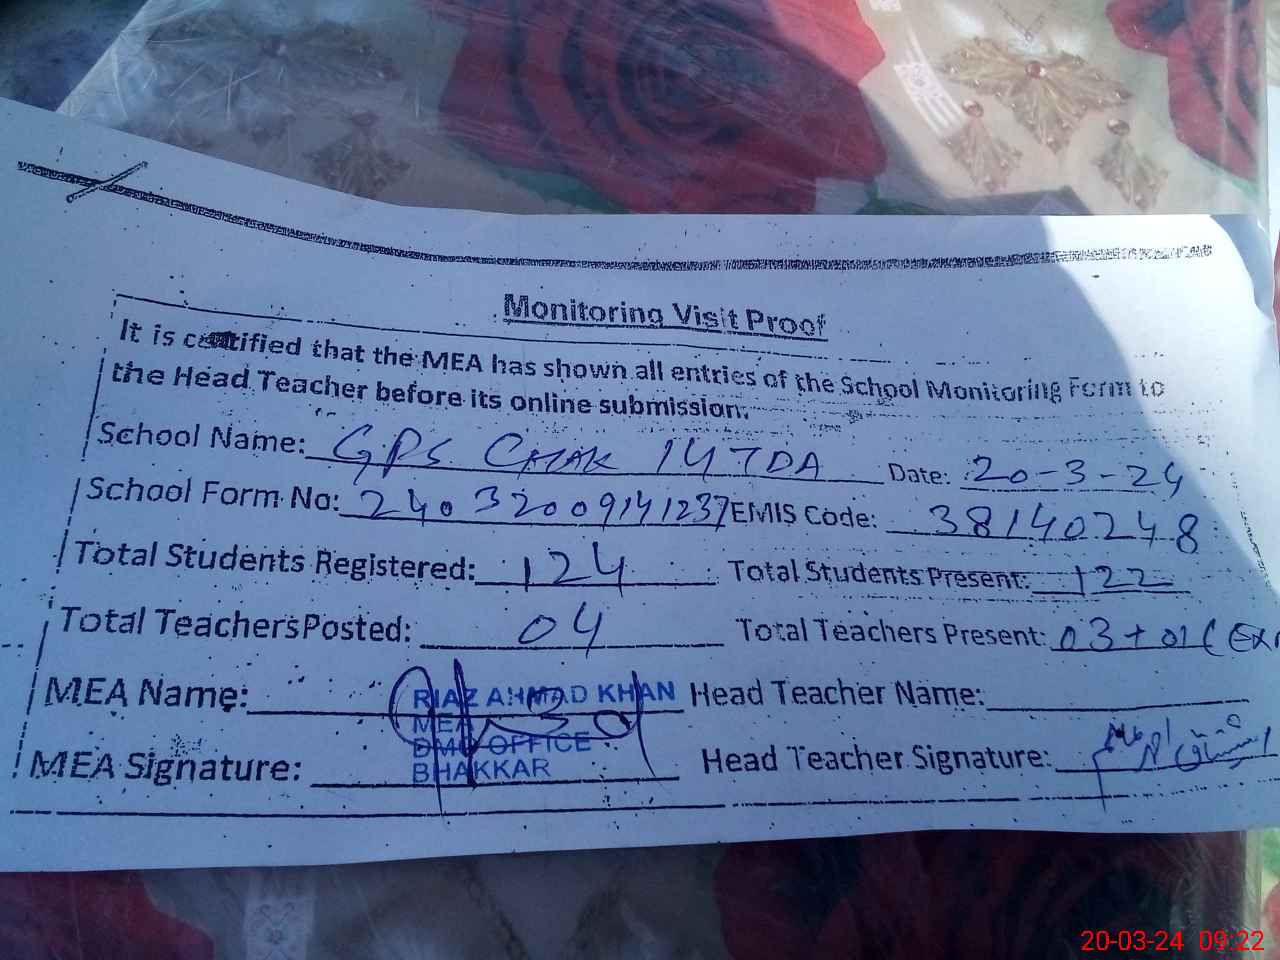 Monitoring Visit Proof
It is certified that the MEA has shown all entries of the School Monitoring Form to
the Head Teacher before its online submission.
School Name: GPS CHAK 14 TDA Date: 20-3-24
School Form No: 24032009141237 EMIS Code: 38140248
Total Students Registered: 124 Total Students Present: 122
Total Teachers Posted: 04 Total Teachers Present: 03+01(
MEA Name: RIAZ AHMAD KHAN Head Teacher Name:
MEA
DMO OFFICE
MEA Signature: BHAKKAR Head Teacher Signature:
20-03-24 09:22